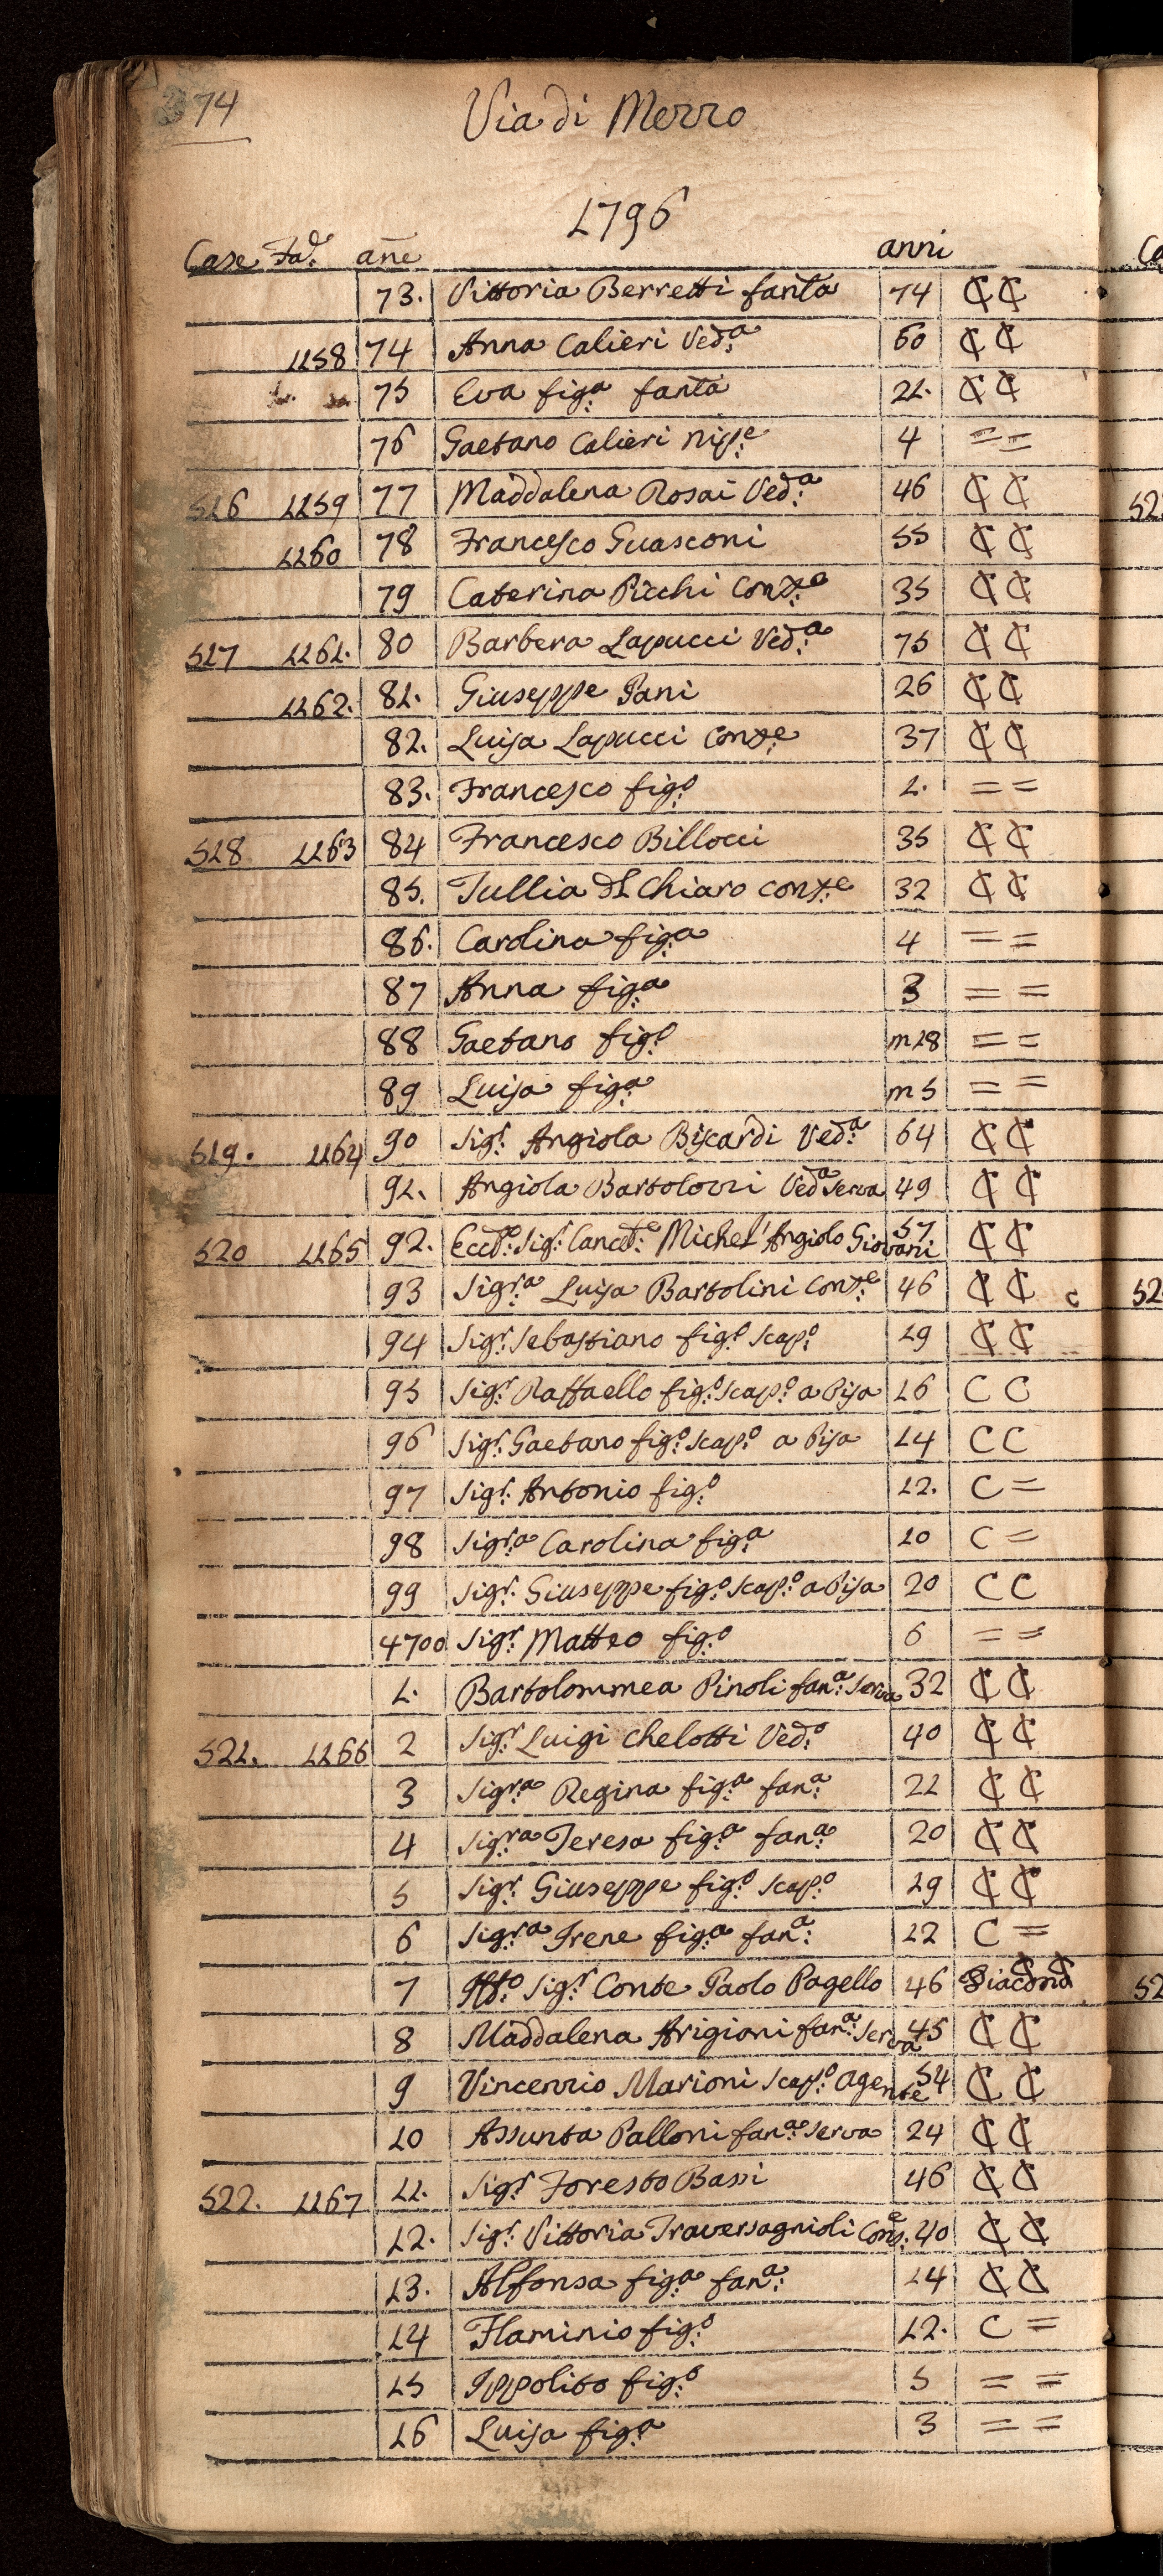 374
Via di Mezzo
1796
Case Fa.e ane anni
73. Vittoria Berretti fanta 74 ₵ ₵
1158 74 Anna Calieri Ved.a 60 ₵ ₵
75 Eva fig.a fanta 21. ₵ ₵
76 Gaetano Calieri nip.e 4 = =
516 1159 77 Maddalena Rosai Ved.a 46 ₵ ₵
1160 78 Francesco Guasconi 55 ₵ ₵
79 Caterina Picchi Cons.e 35 ₵ ₵
517 1161. 80 Barbera Lapucci Ved.a 75 ₵ ₵
1162. 81. Giuseppe Pani 26 ₵ ₵
82. Luisa Lapucci Cons.e 37 ₵ ₵
83. Francesco fig.o 1. = =
518 1163 84 Francesco Billocci 35 ₵ ₵
85. Tullia del Chiaro cons.e 32 ₵ ₵
86. Carolina fig.a 4 = =
87 Anna fig.a 3 = =
88 Gaetano fig.o m18 = =
89 Luisa fig.a m5 = =
519. 1164 90 Sig.r Angiola Biscardi Ved.a 64 ₵ ₵
91. Angiola Bartolozzi Ved.a Serva 49 ₵ ₵
520 1165 92. Ecc.o Sig.r Canc.e Michel'Angiolo Giovani 57 ₵ ₵
93 Sigr.a Luisa Bartolini Cons.e 46 ₵ ₵ c
94 Sig.r Sebastiano fig.o Scap.o 19 ₵ ₵
95 Sig.r Raffaello fig.o Scap.o a Pisa 16 C C
96 Sig.r Gaetano fig.o Scap.o a Pisa 14 C C
97 Sig.r Antonio fig.o 12. C =
98 Sigr.a Carolina fig.a 10 C =
99 Sig.r Giuseppe fig.o Scap.o a Pisa 20 C C
4700 Sig.r Matteo fig.o 6 = =
1. Bartolommea Pinoli fan.a Serva 32 ₵ ₵
521. 1166 2 Sig.r Luigi Chelotti Ved.o 40 ₵ ₵
3 Sigr.a Regina fig.a fan.a 21 ₵ ₵
4 Sigr.a Teresa fig.a fan.a 20 ₵ ₵
5 Sig.r Giuseppe fig.o Scap.o 19 ₵ ₵
6 Sigr.a Irene fig.a fan.a 12 C =
7 Ill.o Sig.r Conte Paolo Pagello 46 Diacono ₵ ₵
8 Maddalena Arigioni fan.a Serva 45 ₵ ₵
9 Vincenzio Marioni Scap.o Agente 54 ₵ ₵
10 Assunta Palloni fan.a Serva 24 ₵ ₵
522. 1167 11. Sig.r Foresto Bassi 46 ₵ ₵
12. Sig.r Vittoria Traversagnioli Cons.e 40 ₵ ₵
13. Alfonsa fig.a fan.a 14 ₵ ₵
14 Flaminio fig.o 12. C =
15 Ippolito fig.o 5 = =
16 Luisa fig.a 3 = =